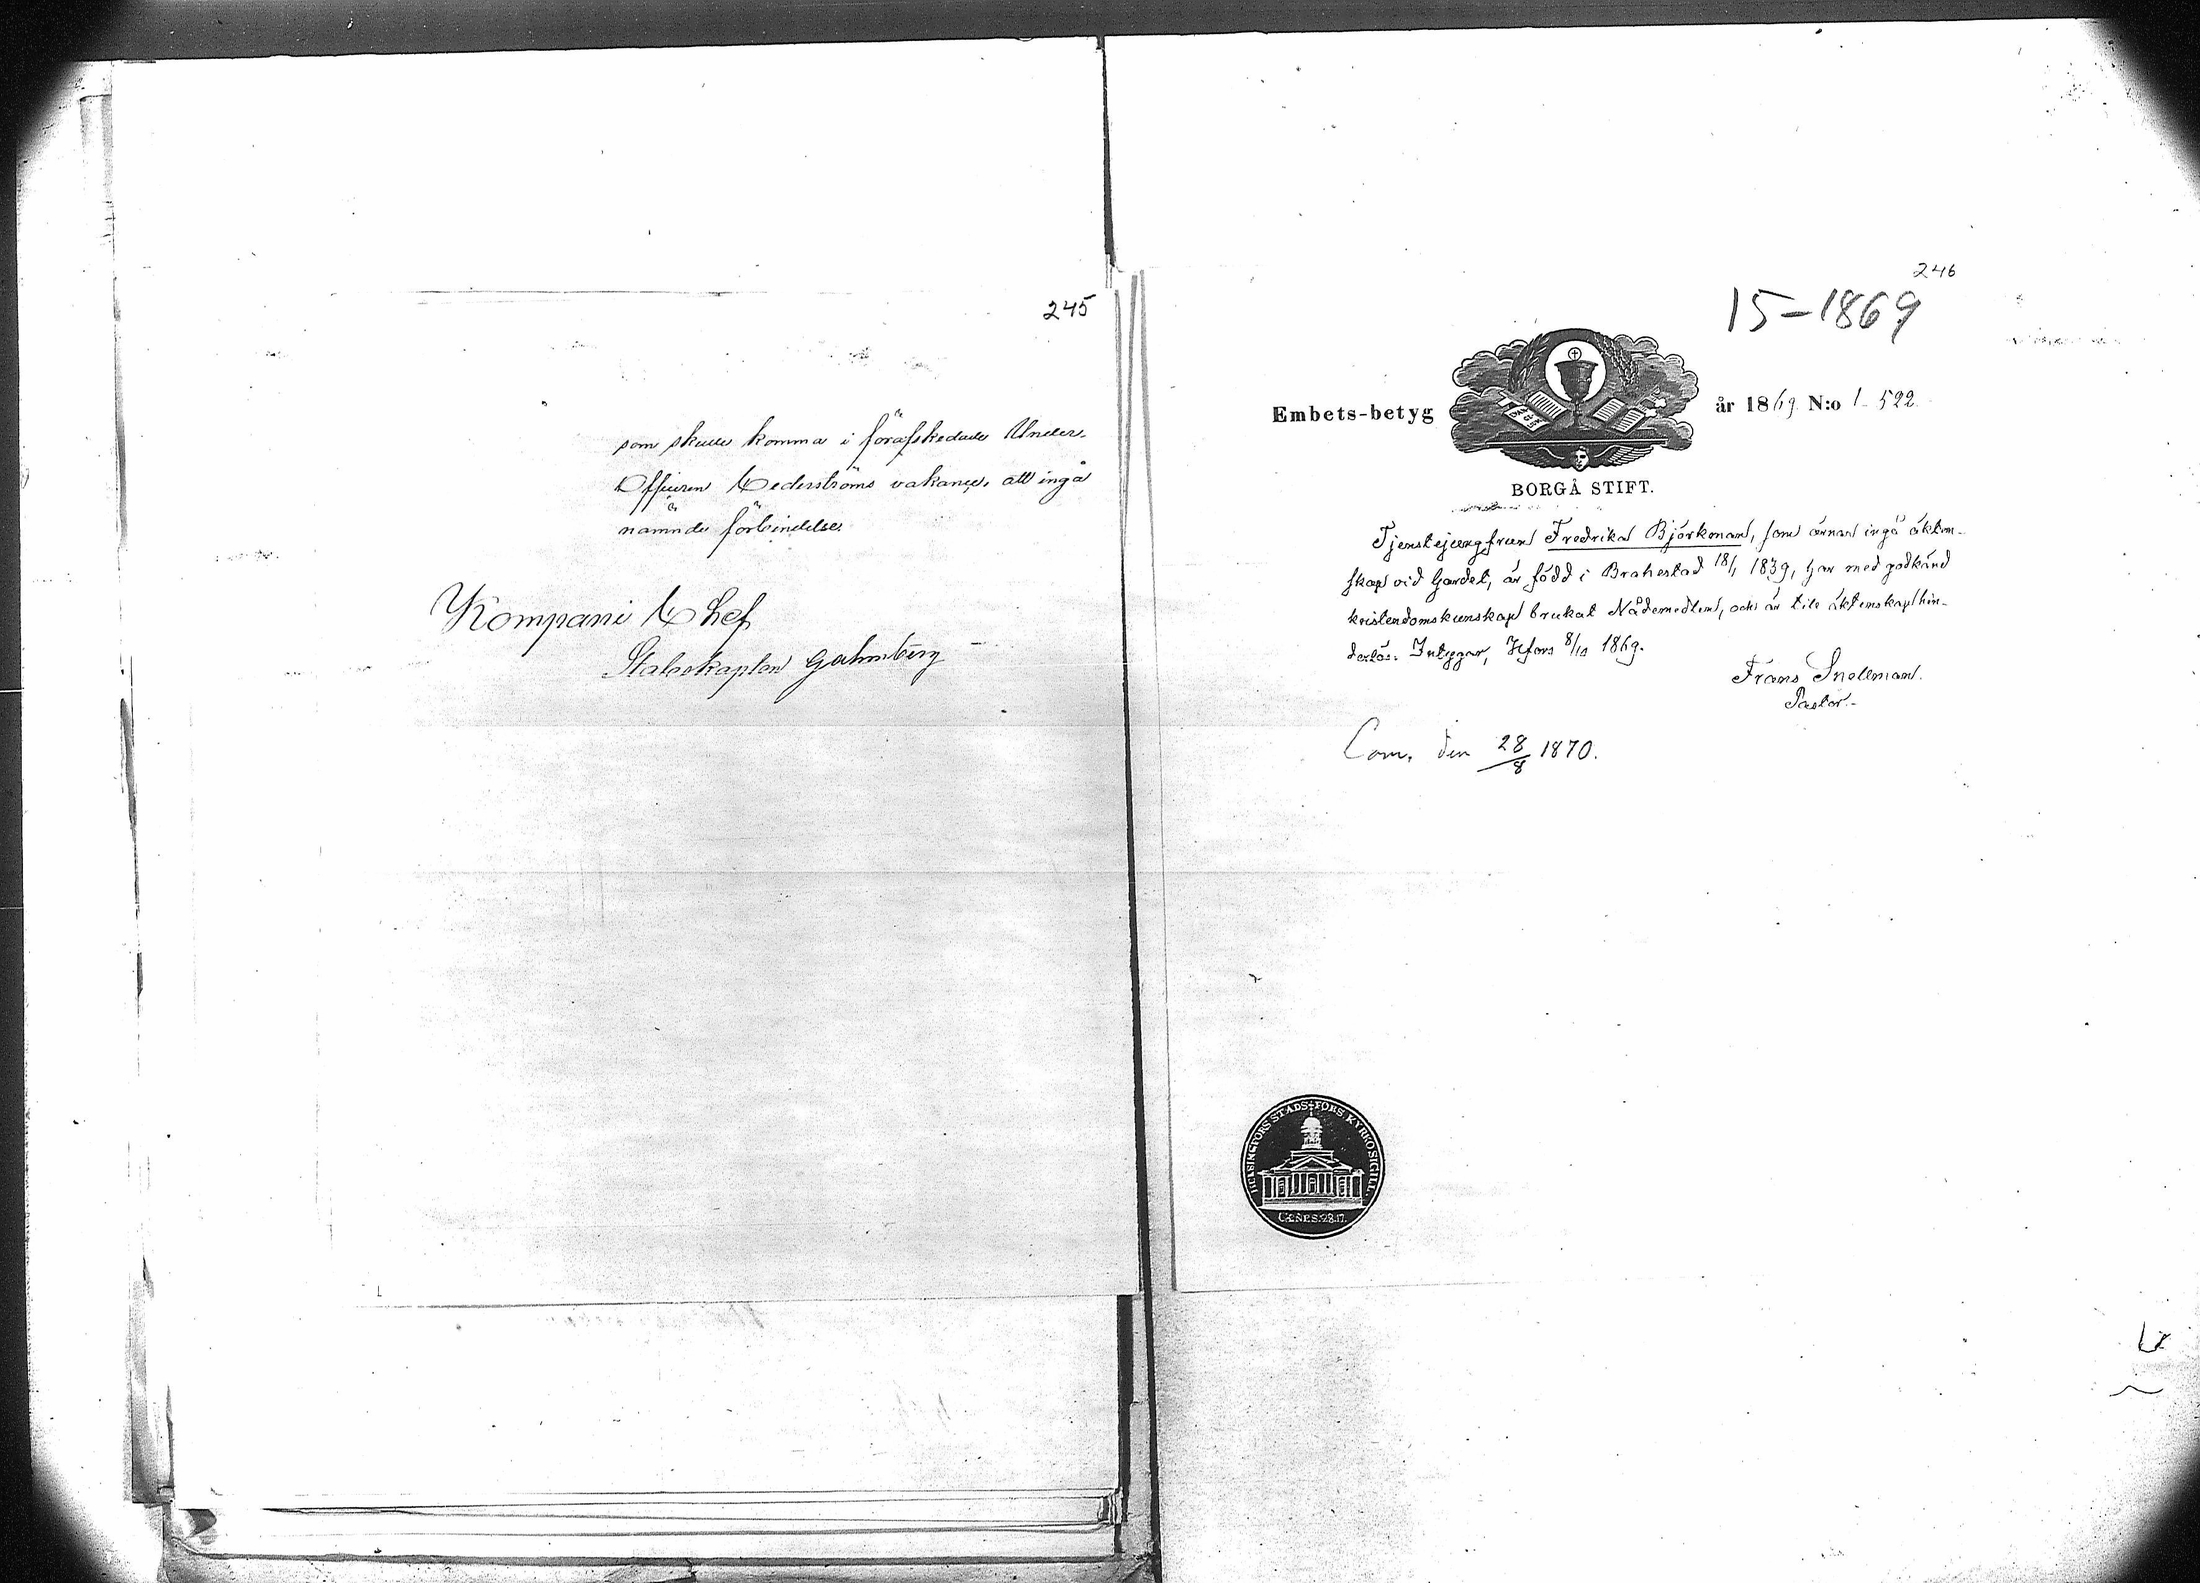 245
som skulle komma i förafskedade Under-
Officeren Cederströms vakance, att ingå
nämnde förbindelse.
Kompani Chef
Stabskapten Gahmberg
246
15-1869
Embets-betyg år 1869 N:o 1-522
BORGÅ STIFT.
Tjenstejungfrun Fredrika Björkman, som ärnar ingå äkten-
skap vid Gardet, är född i Brahestad 18/1 1839, har med godkänd
kristendomskunskap brukat Nådemedlen, och är till äktenskap hin-
derlös. Intygar, Hfors 8/10 1869.
Frans Snellman.
Pastor.
Com. den 28/8 1870.
HELSINGFORS STADS FÖRS. KYRKOSIGILL.
GENES. 28.17.